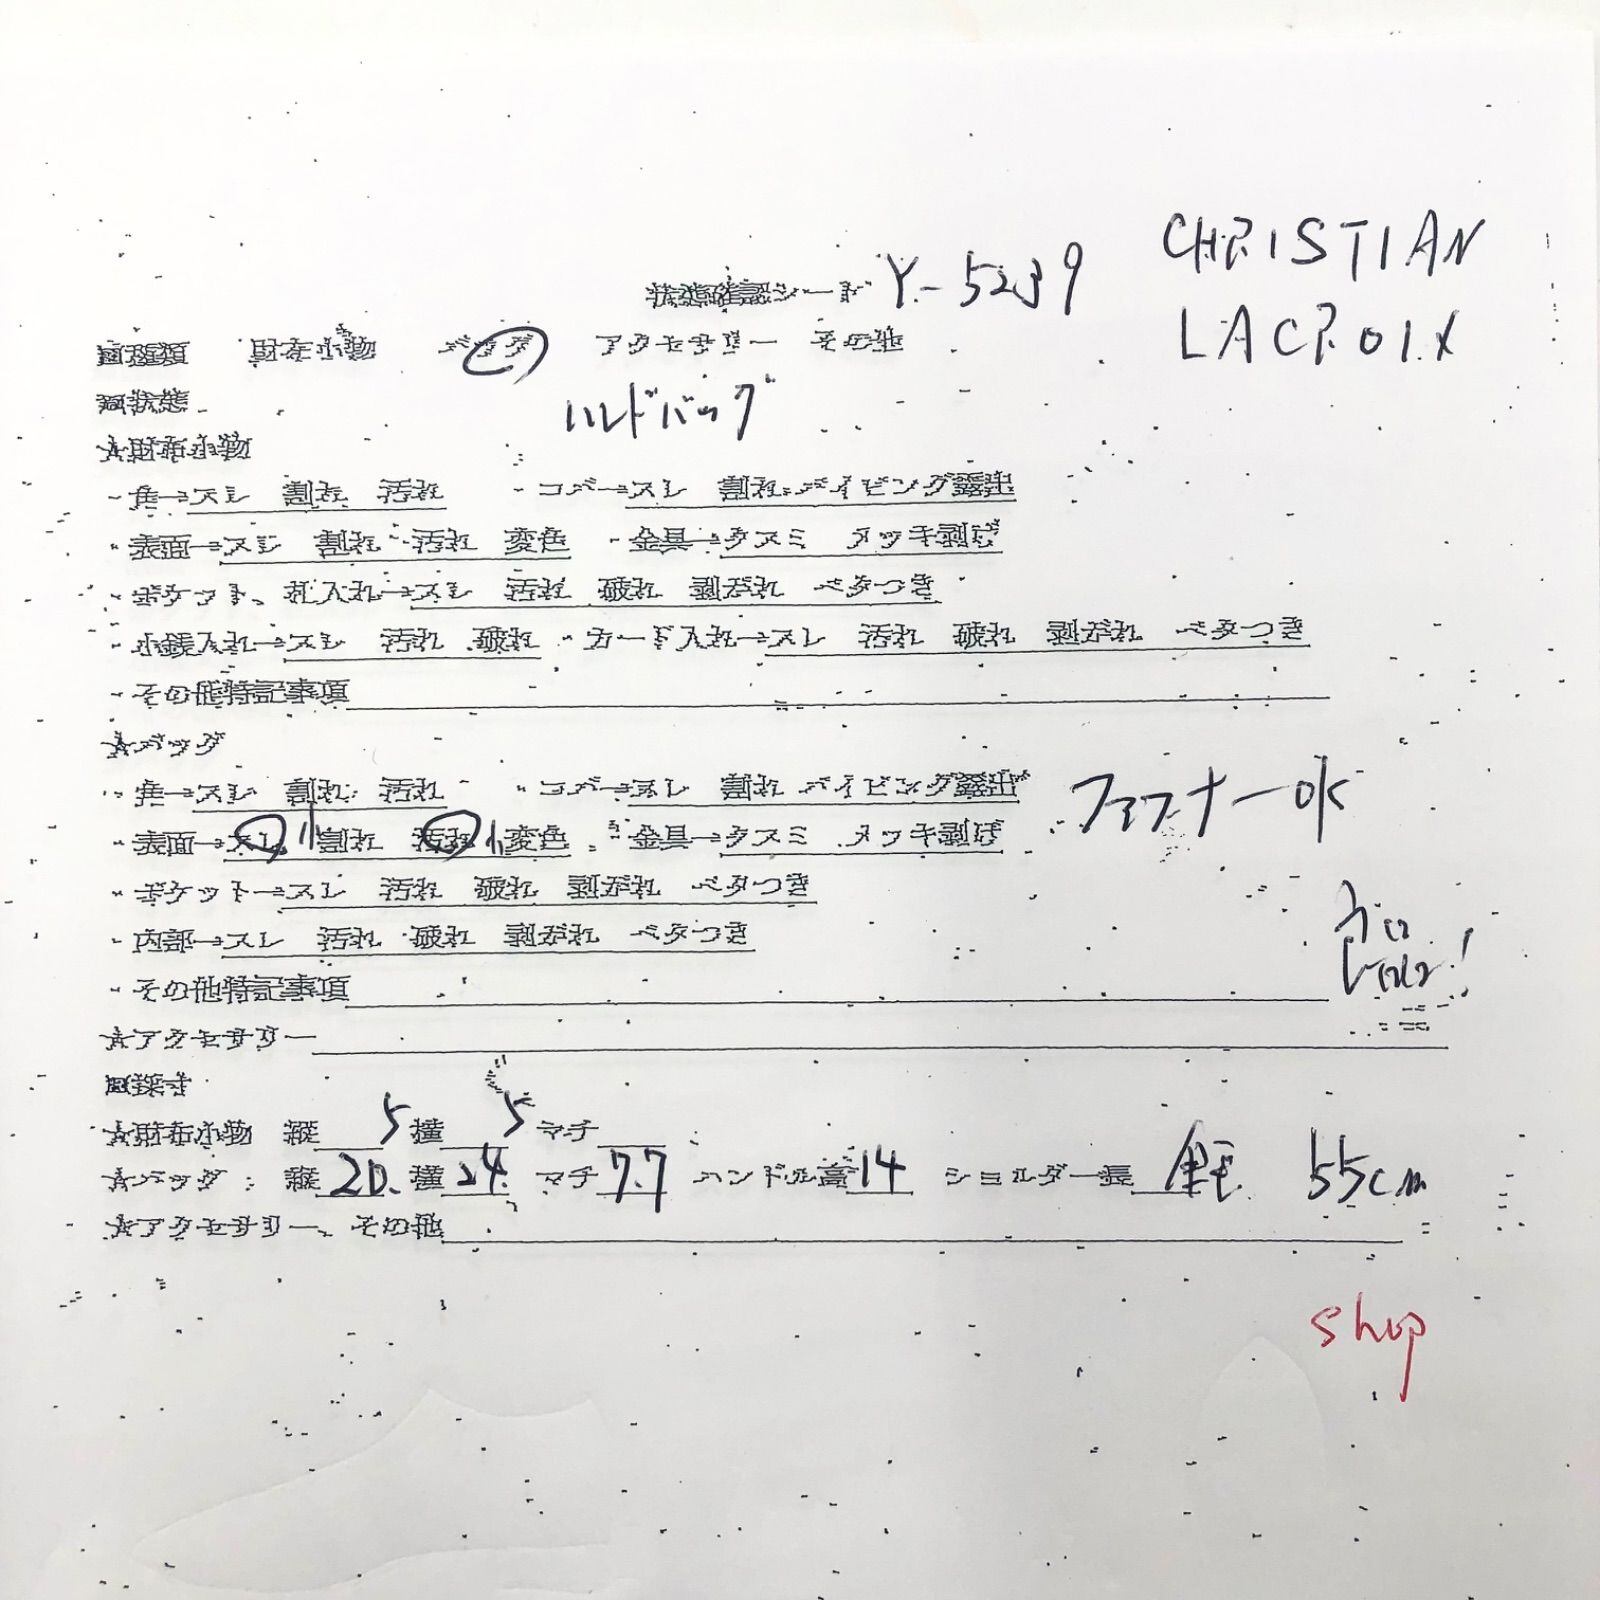 状態確認シート Y-5239 CHRISTIAN
LACROIX
財布小物 バッグ アクセサリー その他
状態
ハンドバッグ
☆財布小物
・角→スレ 割れ 汚れ ・コバ→スレ 割れ パイピング露出
・表面→スレ 割れ 汚れ 変色 ・金具→クスミ メッキ剥げ
・ポケット、札入れ→スレ 汚れ 破れ 剥がれ ベタつき
・小銭入れ→スレ 汚れ 破れ ・カード入れ→スレ 汚れ 破れ 剥がれ ベタつき
・その他特記事項
☆バッグ
・角→スレ 割れ 汚れ ・コバ→スレ 割れ パイピング露出
ファスナーOK
・表面→スレ 小 割れ 汚れ 小 変色 ・金具→クスミ メッキ剥げ
・ポケット→スレ 汚れ 破れ 剥がれ ベタつき
・内部→スレ 汚れ 破れ 剥がれ ベタつき
・その他特記事項
☆アクセサリー
採寸
☆財布小物 縦 5 横 5 マチ
☆バッグ : 縦 20. 横 24. マチ 7.7 ハンドル高 14 ショルダー長 55cm
☆アクセサリー、その他
shop